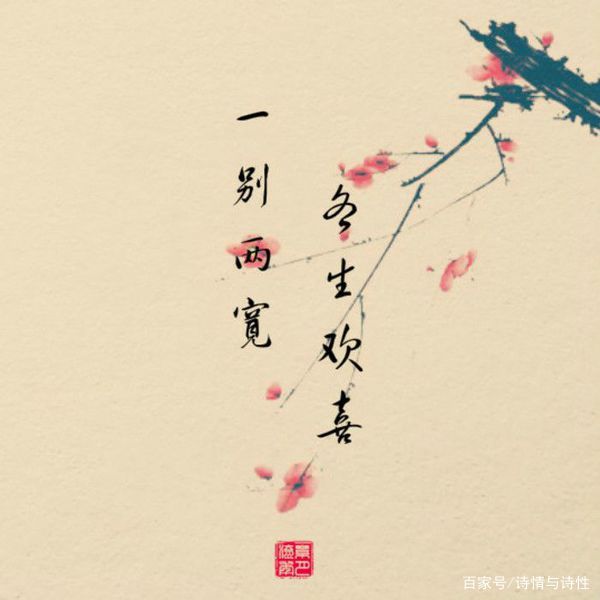 一别两宽
各生欢喜
百家号/诗情与诗性